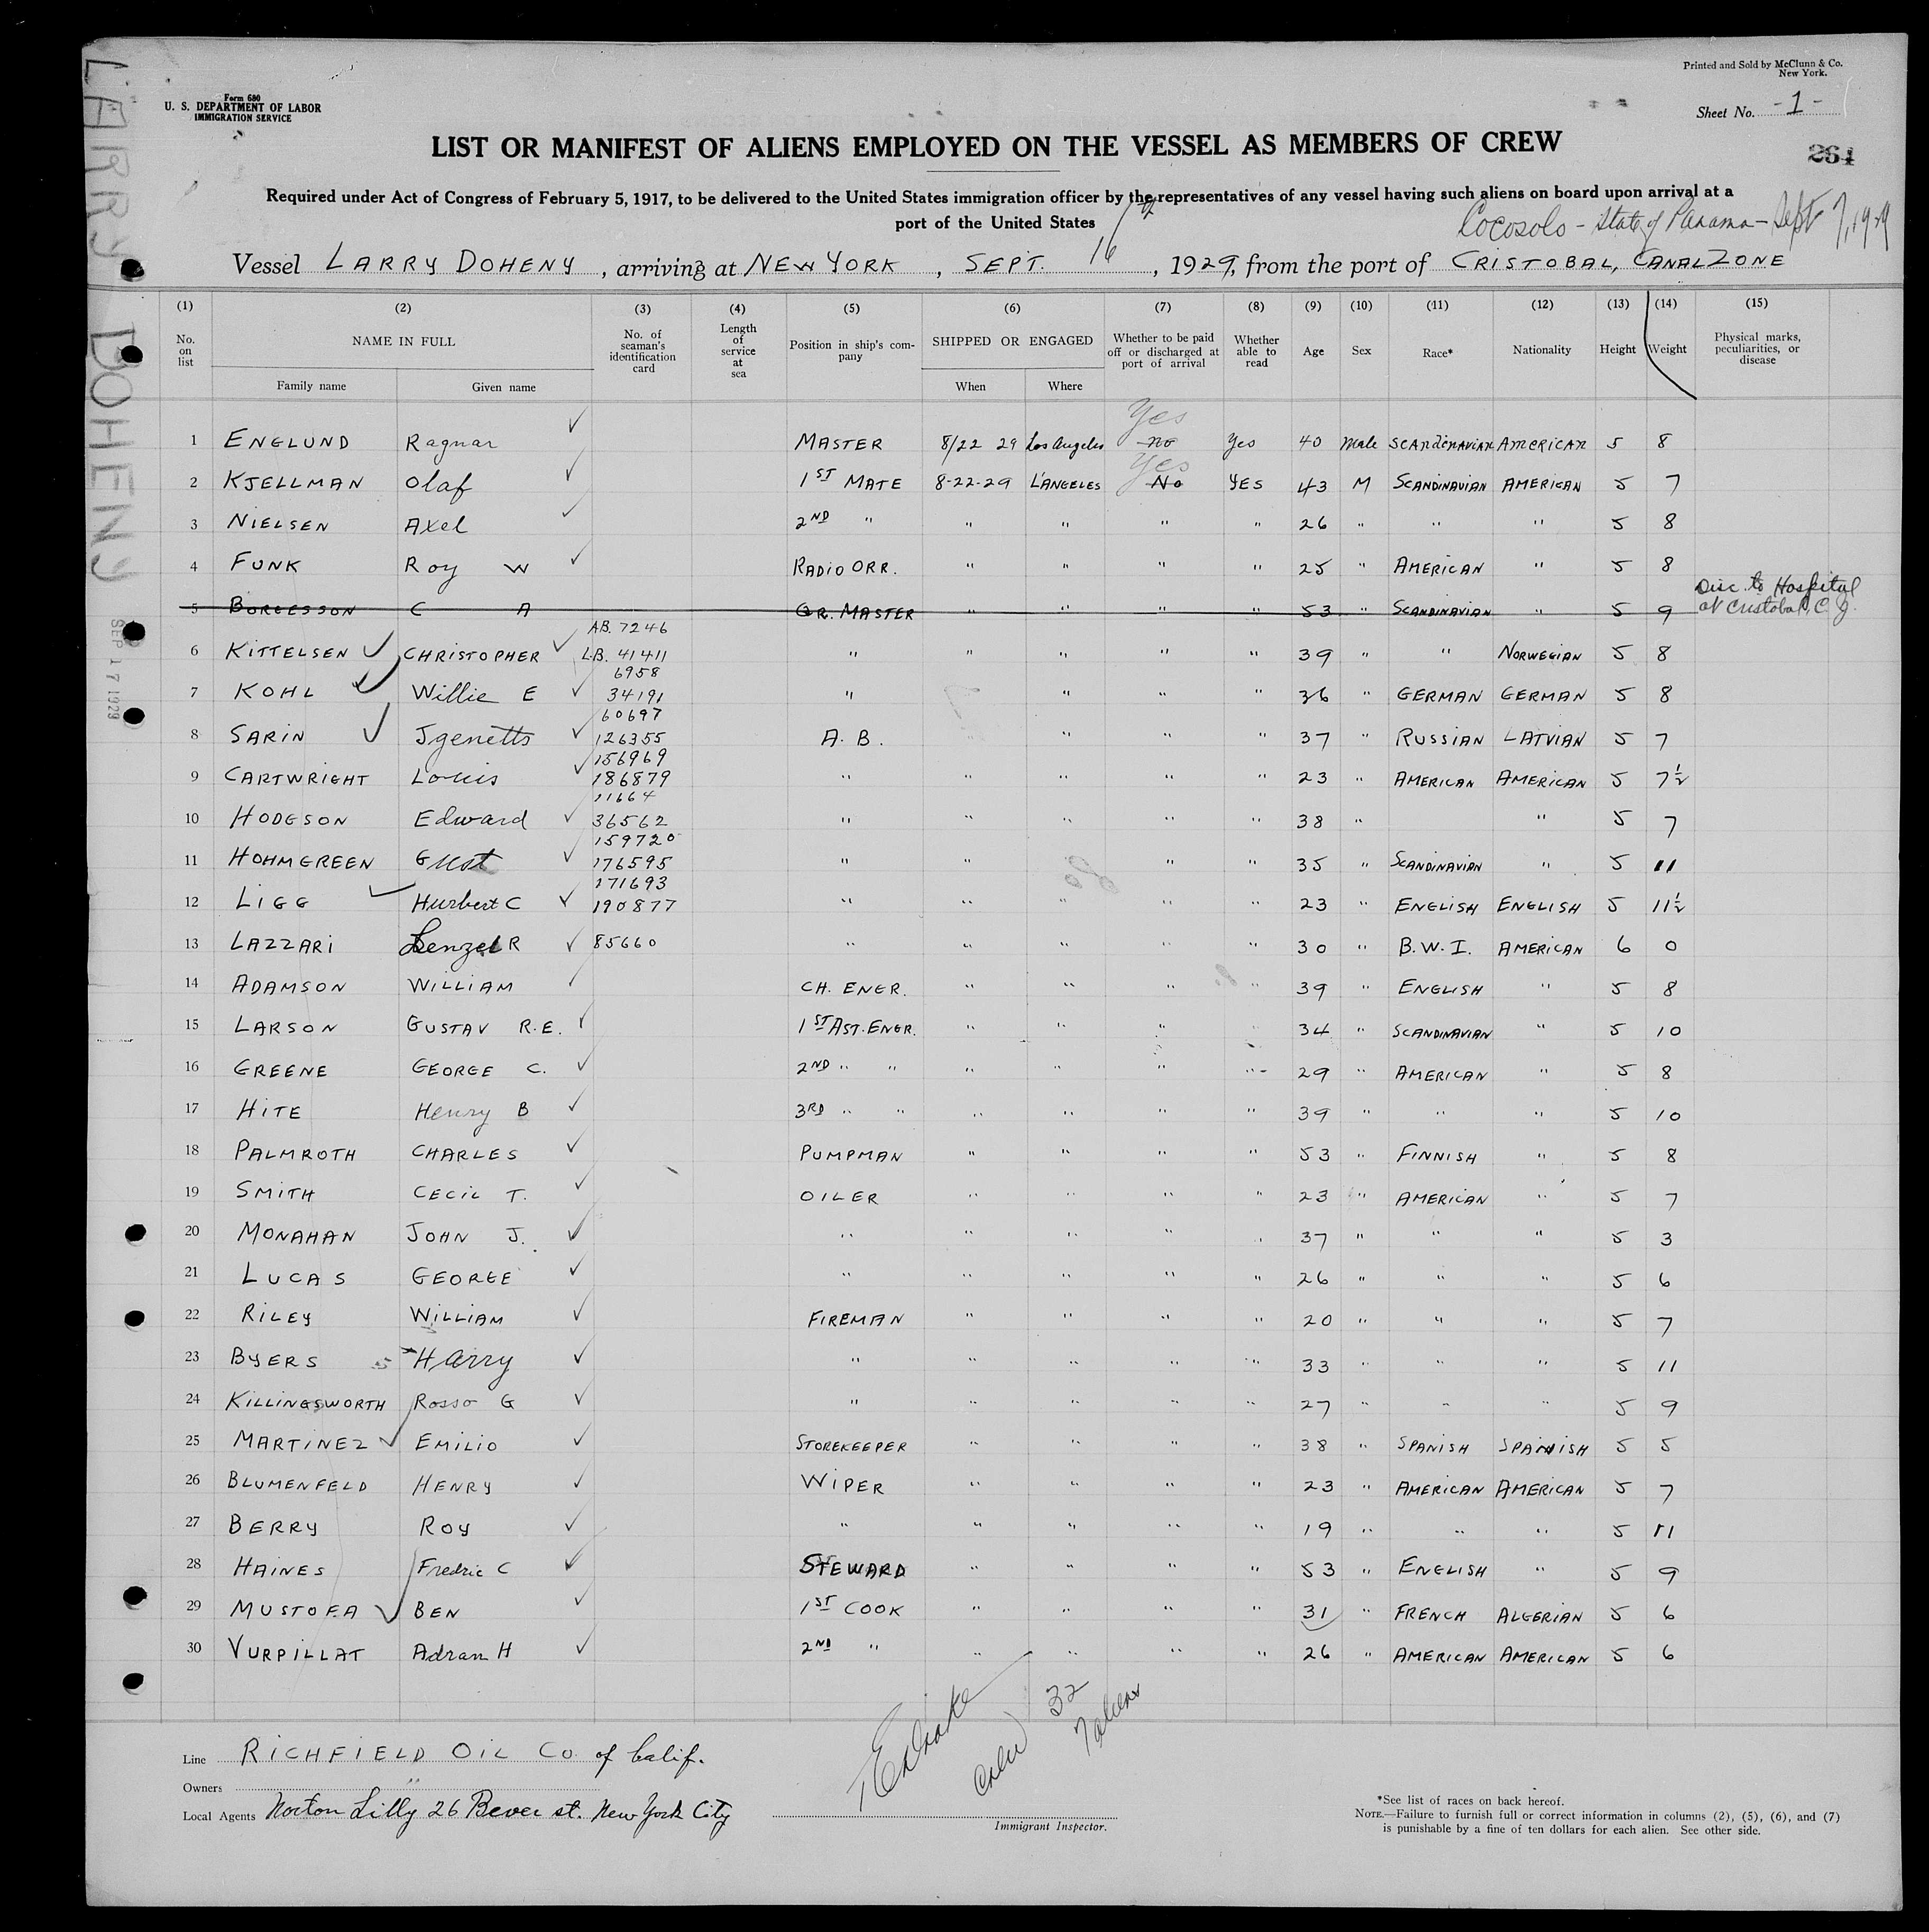 Form 680
U. S. DEPARTMENT OF LABOR
IMMIGRATION SERVICE
Printed and Sold by McClunn & Co.
New York.
Sheet No. -1-
LIST OR MANIFEST OF ALIENS EMPLOYED ON THE VESSEL AS MEMBERS OF CREW
264
Required under Act of Congress of February 5, 1917, to be delivered to the United States immigration officer by the representatives of any vessel having such aliens on board upon arrival at a
port of the United States
Cocosolo - State of Panama - Sept 7, 1929
Vessel LARRY DOHENY, arriving at NEW YORK, SEPT. 16, 1929, from the port of CRISTOBAL, CANAL ZONE
LARRY DOHENY
SEP 17 1929
(1) (2) (3) (4) (5) (6) (7) (8) (9) (10) (11) (12) (13) (14) (15)
No. on list
NAME IN FULL
Family name Given name
No. of seaman's identification card
Length of service at sea
Position in ship's company
SHIPPED OR ENGAGED
When Where
Whether to be paid off or discharged at port of arrival
Whether able to read
Age Sex Race* Nationality Height Weight
Physical marks, peculiarities, or disease
Yes
1 ENGLUND Ragnar ✓ MASTER 8/22 29 Los Angeles no Yes 40 Male SCANDINAVIAN AMERICAN 5 8
Yes
2 KJELLMAN Olaf ✓ 1ST MATE 8-22-29 L'ANGELES No YES 43 M SCANDINAVIAN AMERICAN 5 7
3 NIELSEN AXel ✓ 2ND " " " " " 26 " " " 5 8
4 FUNK Roy W ✓ RADIO OPR. " " " " 25 " AMERICAN " 5 8
5 BORGESSON C A QR. MASTER " " " " 53 " SCANDINAVIAN " 5 9 Disc. to Hospital at Cristobal, C.Z.
AB. 7246
6 KITTELSEN ✓ CHRISTOPHER ✓ L.B. 41411 " " " " " 39 " " NORWEGIAN 5 8
6958
7 KOHL ✓ Willie E ✓ 34191 " " " " 36 " GERMAN GERMAN 5 8
60697
8 SARIN ✓ Jgenetts ✓ 126355 A. B. " " " 37 " RUSSIAN LATVIAN 5 7
156969
9 CARTWRIGHT Louis ✓ 186879 " " " " " 23 " AMERICAN AMERICAN 5 7½
11664
10 HODGSON Edward ✓ 36562 " " " " " 38 " " 5 7
159720
11 HOHMGREEN Gust ✓ 176595 " " " " 35 " SCANDINAVIAN " 5 11
171693
12 LIGG ✓ Hurbert C ✓ 190877 " " " " " 23 " ENGLISH ENGLISH 5 11½
13 LAZZARI Lenzel R ✓ 85660 " " " " " 30 " B.W.I. AMERICAN 6 0
14 ADAMSON WILLIAM ✓ CH. ENGR. " " " " 39 " ENGLISH " 5 8
15 LARSON GUSTAV R.E. ✓ 1ST AST. ENGR. " " " 34 " SCANDINAVIAN " 5 10
16 GREENE GEORGE C. ✓ 2ND " " " " " " 29 " AMERICAN " 5 8
17 HITE Henry B ✓ 3RD " " " " " " 39 " " " 5 10
18 PALMROTH CHARLES ✓ PUMPMAN " " " " 53 " FINNISH " 5 8
19 SMITH CECIL T. ✓ OILER " " " " 23 " AMERICAN " 5 7
20 MONAHAN JOHN J. ✓ " " " " " 37 " " " 5 3
21 LUCAS GEORGE ✓ " " " " " 26 " " " 5 6
22 RILEY WILLIAM ✓ FIREMAN " " " " 20 " " " 5 7
23 BYERS HArry ✓ " " " " " 33 " " " 5 11
24 KILLINGSWORTH Rosso G ✓ " " " " " 27 " " " 5 9
25 MARTINEZ ✓ EMILIO ✓ STOREKEEPER " " " " 38 " SPANISH SPANISH 5 5
26 BLUMENFELD HENRY ✓ WIPER " " " " 23 " AMERICAN AMERICAN 5 7
27 BERRY ROY ✓ " " " " " 19 " " " 5 11
28 HAINES Fredric C ✓ STEWARD " " " " 53 " ENGLISH " 5 9
29 MUSTOFA ✓ BEN ✓ 1ST COOK " " " " 31 " FRENCH ALGERIAN 5 6
30 VURPILLAT Adran H ✓ 2ND " " " " " 26 " AMERICAN AMERICAN 5 6
32
7 aliens
Line RICHFIELD OIL Co. of Calif.
Owners "
Local Agents Norton Lilly 26 Bever st. New York City
Immigrant Inspector.
*See list of races on back hereof.
NOTE.—Failure to furnish full or correct information in columns (2), (5), (6), and (7)
is punishable by a fine of ten dollars for each alien. See other side.